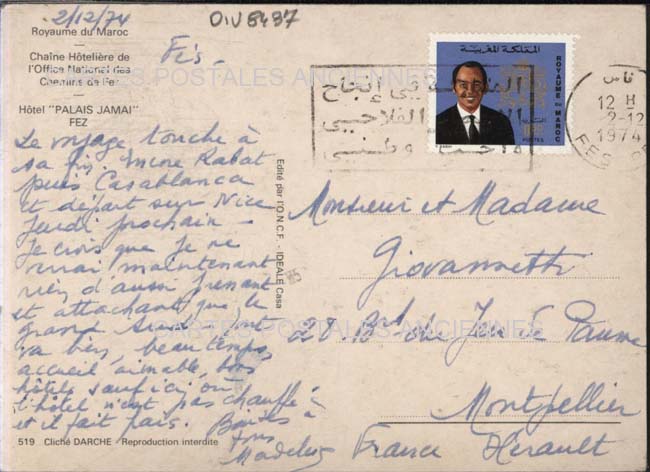 2/12/74
OIV8487
Royaume du Maroc
Fès -
Chaîne Hôtelière de
l'Office National des
Chemins de Fer
Hôtel "PALAIS JAMAI"
FEZ
Le voyage touche à
sa fin, encore Rabat
puis Casablanca
et départ sur Nice
Jeudi prochain -
Je crois que je ne
verrai maintenant
rien d'aussi prenant
et attachant que le
grand Sud. Tout
va bien, beau temps,
accueil aimable, bons
hôtels sauf ici où
l'hôtel n'est pas chauffé
et il fait frais. Bonjour à
tous
519 Cliché DARCHE - Reproduction interdite
Edité par l'O.N.C.F. - IDEALE Casa
المملكة المغربية
ROYAUME DU MAROC
POSTES
فاس
12 H
2-12
1974
FES
إنجاح
وطني
Monsieur et Madame
Giovannetti
28 Bd du Jeu de Paume
Montpellier
France Hérault
CARTES POSTALES ANCIENNES
CARTES POSTALES ANCIENNES